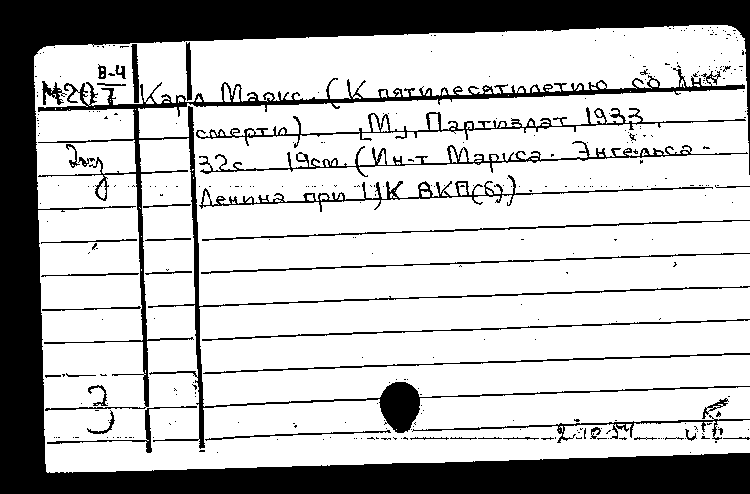 В-4
М207 Карл Маркс. (К пятидесятилетию со дня
смерти) [М], Партиздат, 1933.
32с. 19см. (Ин-т Маркса - Энгельса -
Ленина при ЦК ВКП(б))
3
2 10 54